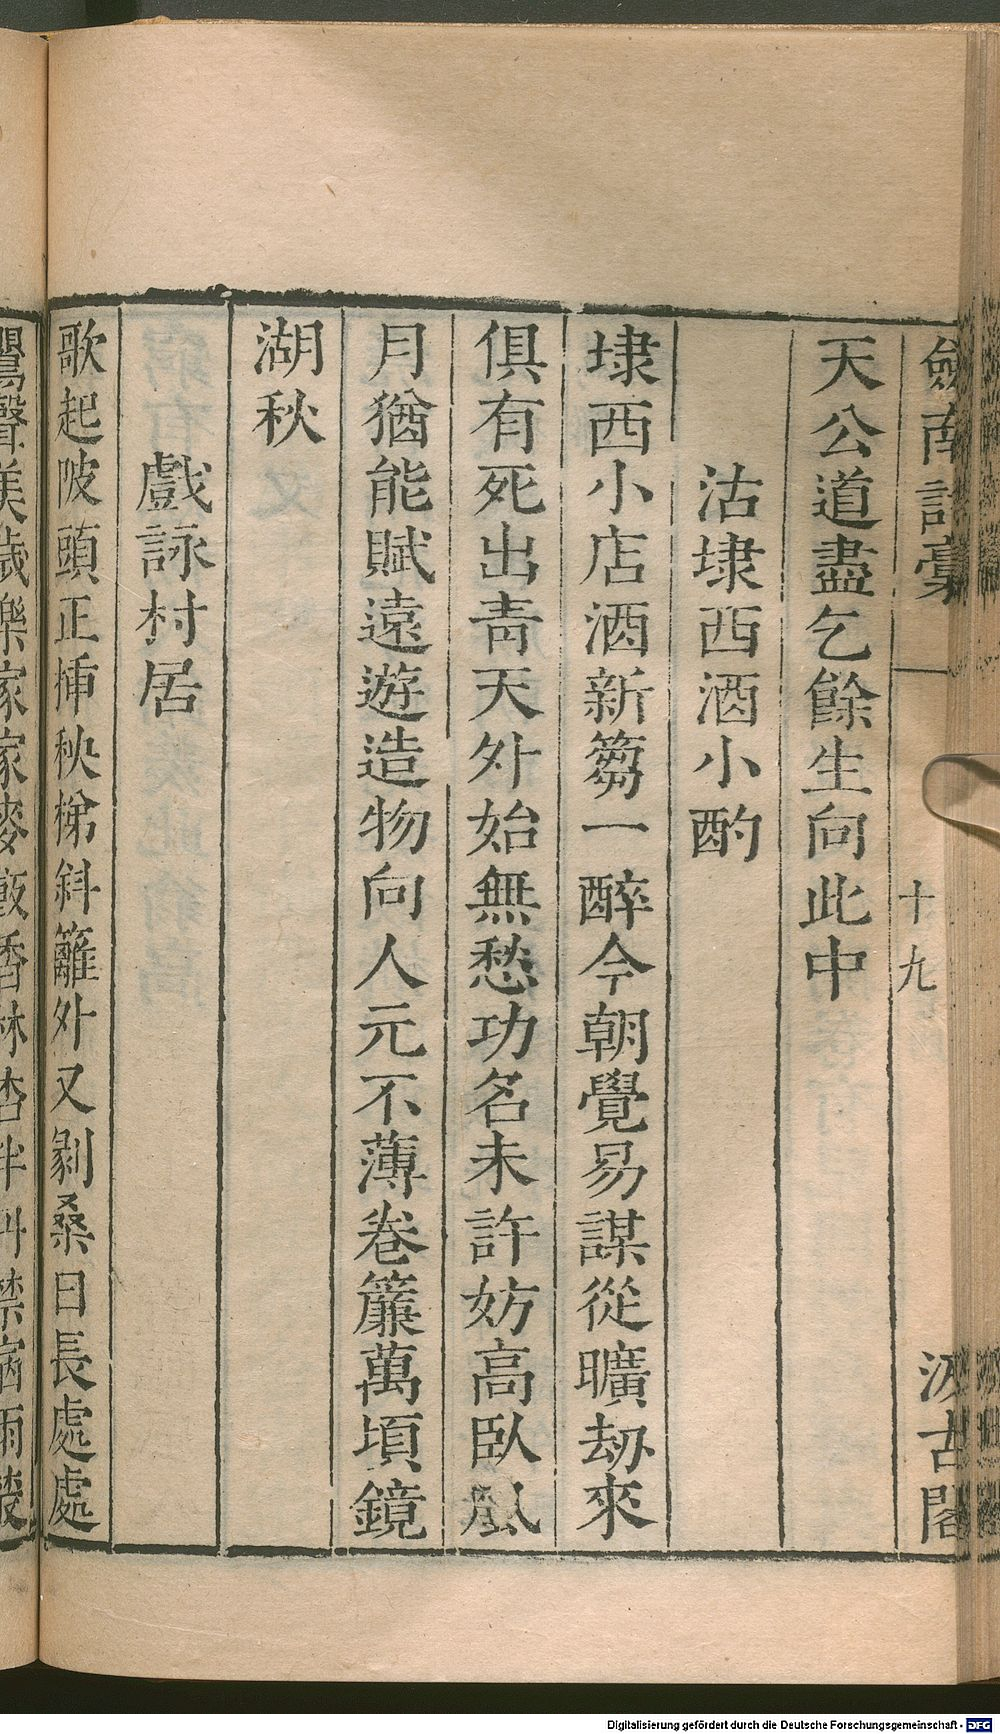 劍南詩稾 十九 汲古閣
天公道盡乞餘生向此中
沽埭西酒小酌
埭西小店酒新篘一醉今朝覺易謀從曠劫來
俱有死出青天外始無愁功名未許妨高臥風
月猶能賦遠遊造物向人元不薄卷簾萬頃鏡
湖秋
戲詠村居
歌起陂頭正揷秧梯斜籬外又剝桑日長處處
鶯聲美歲樂家家麥飯香
Digitalisierung gefördert durch die Deutsche Forschungsgemeinschaft - DFG